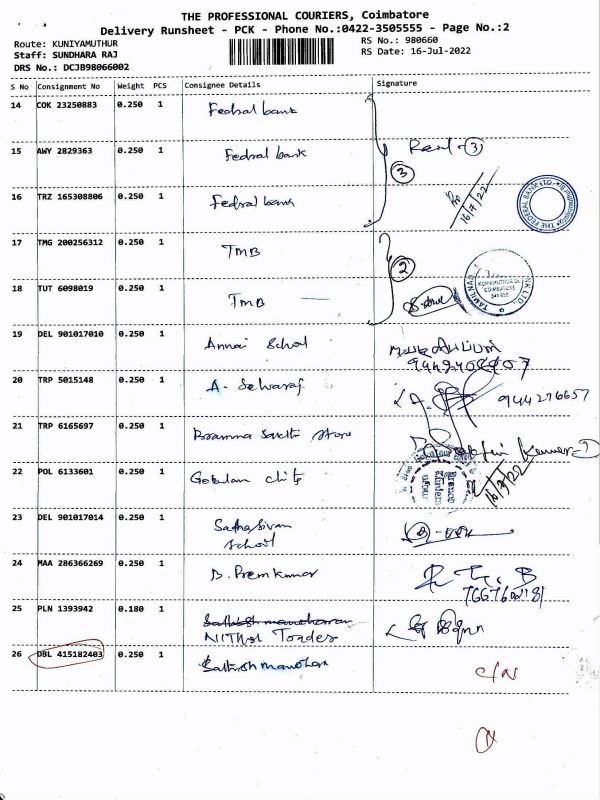 THE PROFESSIONAL COURIERS, Coimbatore
Delivery Runsheet - PCK - Phone No.:0422-3505555 - Page No.:2
Route: KUNIYAMUTHUR
RS No.: 980660
Staff: SUNDHARA RAJ
RS Date: 16-Jul-2022
DRS No.: DCJB98066002
S No Consignment No Weight PCS Consignee Details Signature
14 COK 23250883 0.250 1 Fedral bank
15 AWY 2829363 0.250 1 Fedral bank 3
16 TRZ 165308806 0.250 1 Fedral bank 16/7/22
THE FEDERAL BANK LTD.
17 TMG 200256312 0.250 1 TMB 2
18 TUT 6098019 0.250 1 TMB
19 DEL 901017010 0.250 1 Annai School
20 TRP 5015148 0.250 1 A. Selvaraj
21 TRP 6165697 0.250 1 Store
22 POL 6133601 0.250 1 Gokulam chits 16/7/22
23 DEL 901017014 0.250 1 Sathasivam
School
24 MAA 286366269 0.250 1 B. Prem kumar
25 PLN 1393942 0.180 1 Sathish manoharan
Traders
26 DBL 415182403 0.250 1 Sathish manohar